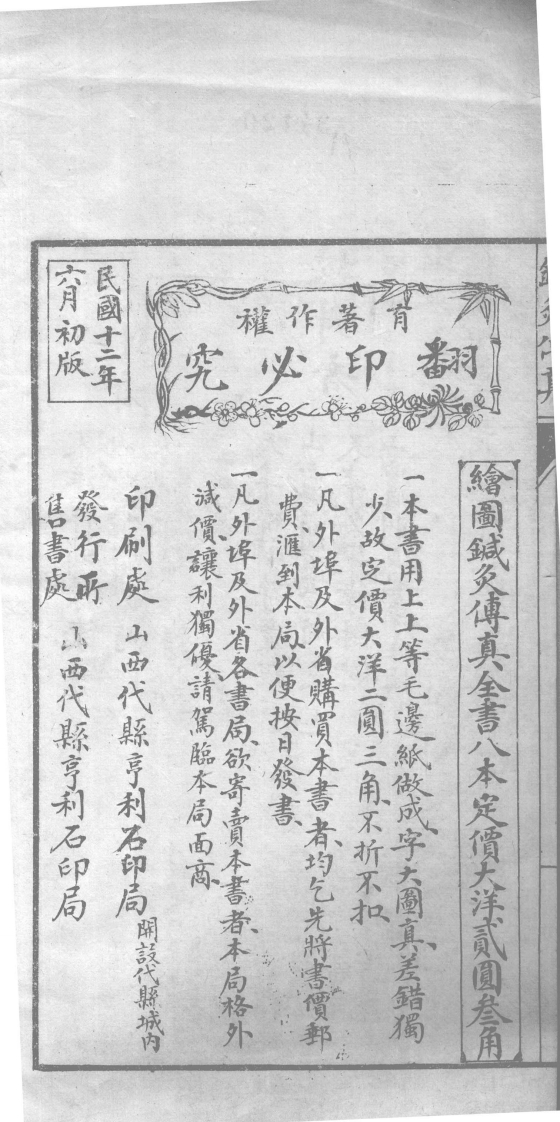 有著作權
翻印必究
民國十二年
六月初版
繪圖鍼灸傳真全書八本定價大洋貳圓叁角
一本書用上上等毛邊紙做成、字大圖真、差錯獨
少、故定價大洋二圓三角、不折不扣、
一凡外埠及外省購買本書者、均乞先將書價郵
費、滙到本局、以便按日發書、
一凡外埠及外省各書局、欲寄賣本書者、本局格外
減價、讓利獨優、請駕臨本局面商、
印刷處 山西代縣亨利石印局 開設代縣城內
發行所
售書處 山西代縣亨利石印局